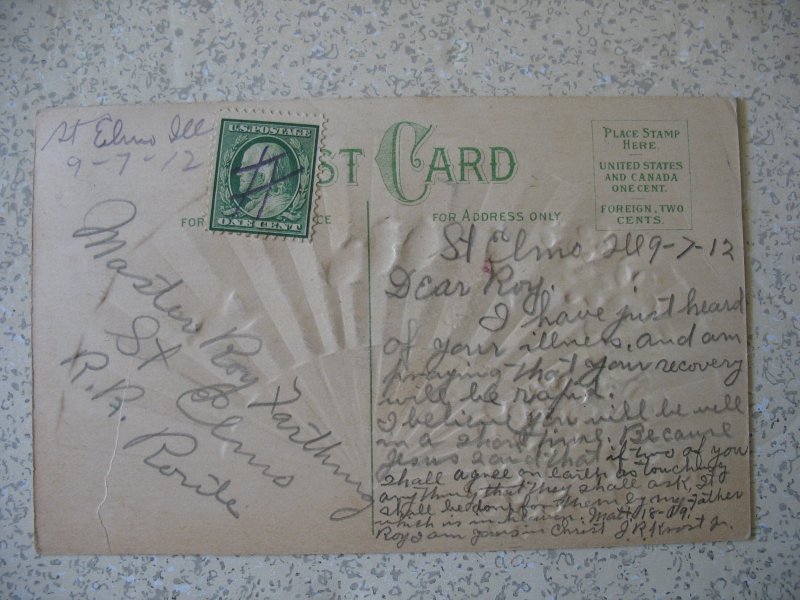 St Elmo Ill
9-7-12
U.S. POSTAGE
ONE CENT
ST CARD
PLACE STAMP
HERE
UNITED STATES
AND CANADA
ONE CENT.
FOREIGN, TWO
CENTS.
FOR ADDRESS ONLY
Master Roy Farthing
St Elmo
R.R. Route
St Elmo, Ill 9-7-12
Dear Roy.
I have just heard
of your illness, and am
praying that your recovery
will be rapid.
I believe you will be well
in a short time. Because
Jesus said that if two of you
shall agree on earth as touching
anything that they shall ask, It
shall be done for them by my Father
which is in heaven. Matt 18-19.
Roy I am yours in Christ J R Jr.